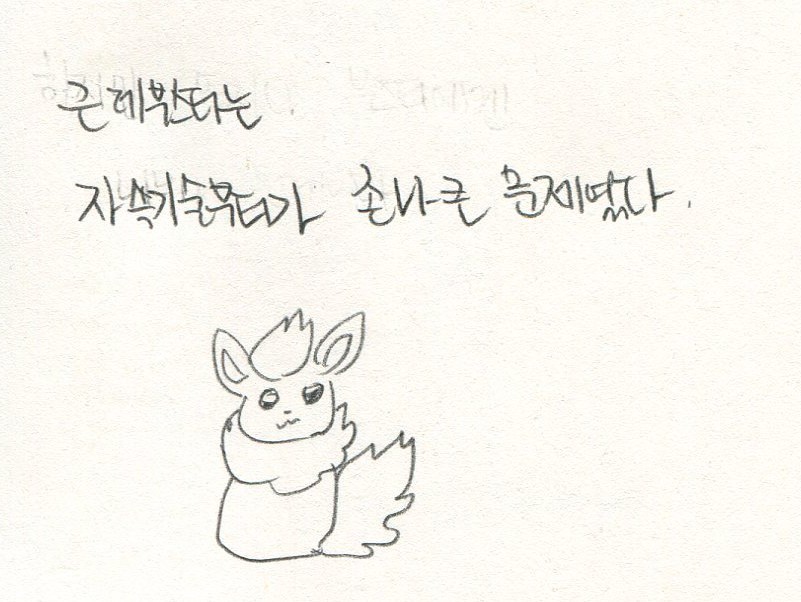 근데 부스터는
자속기술부터가 존나 큰 문제였다.